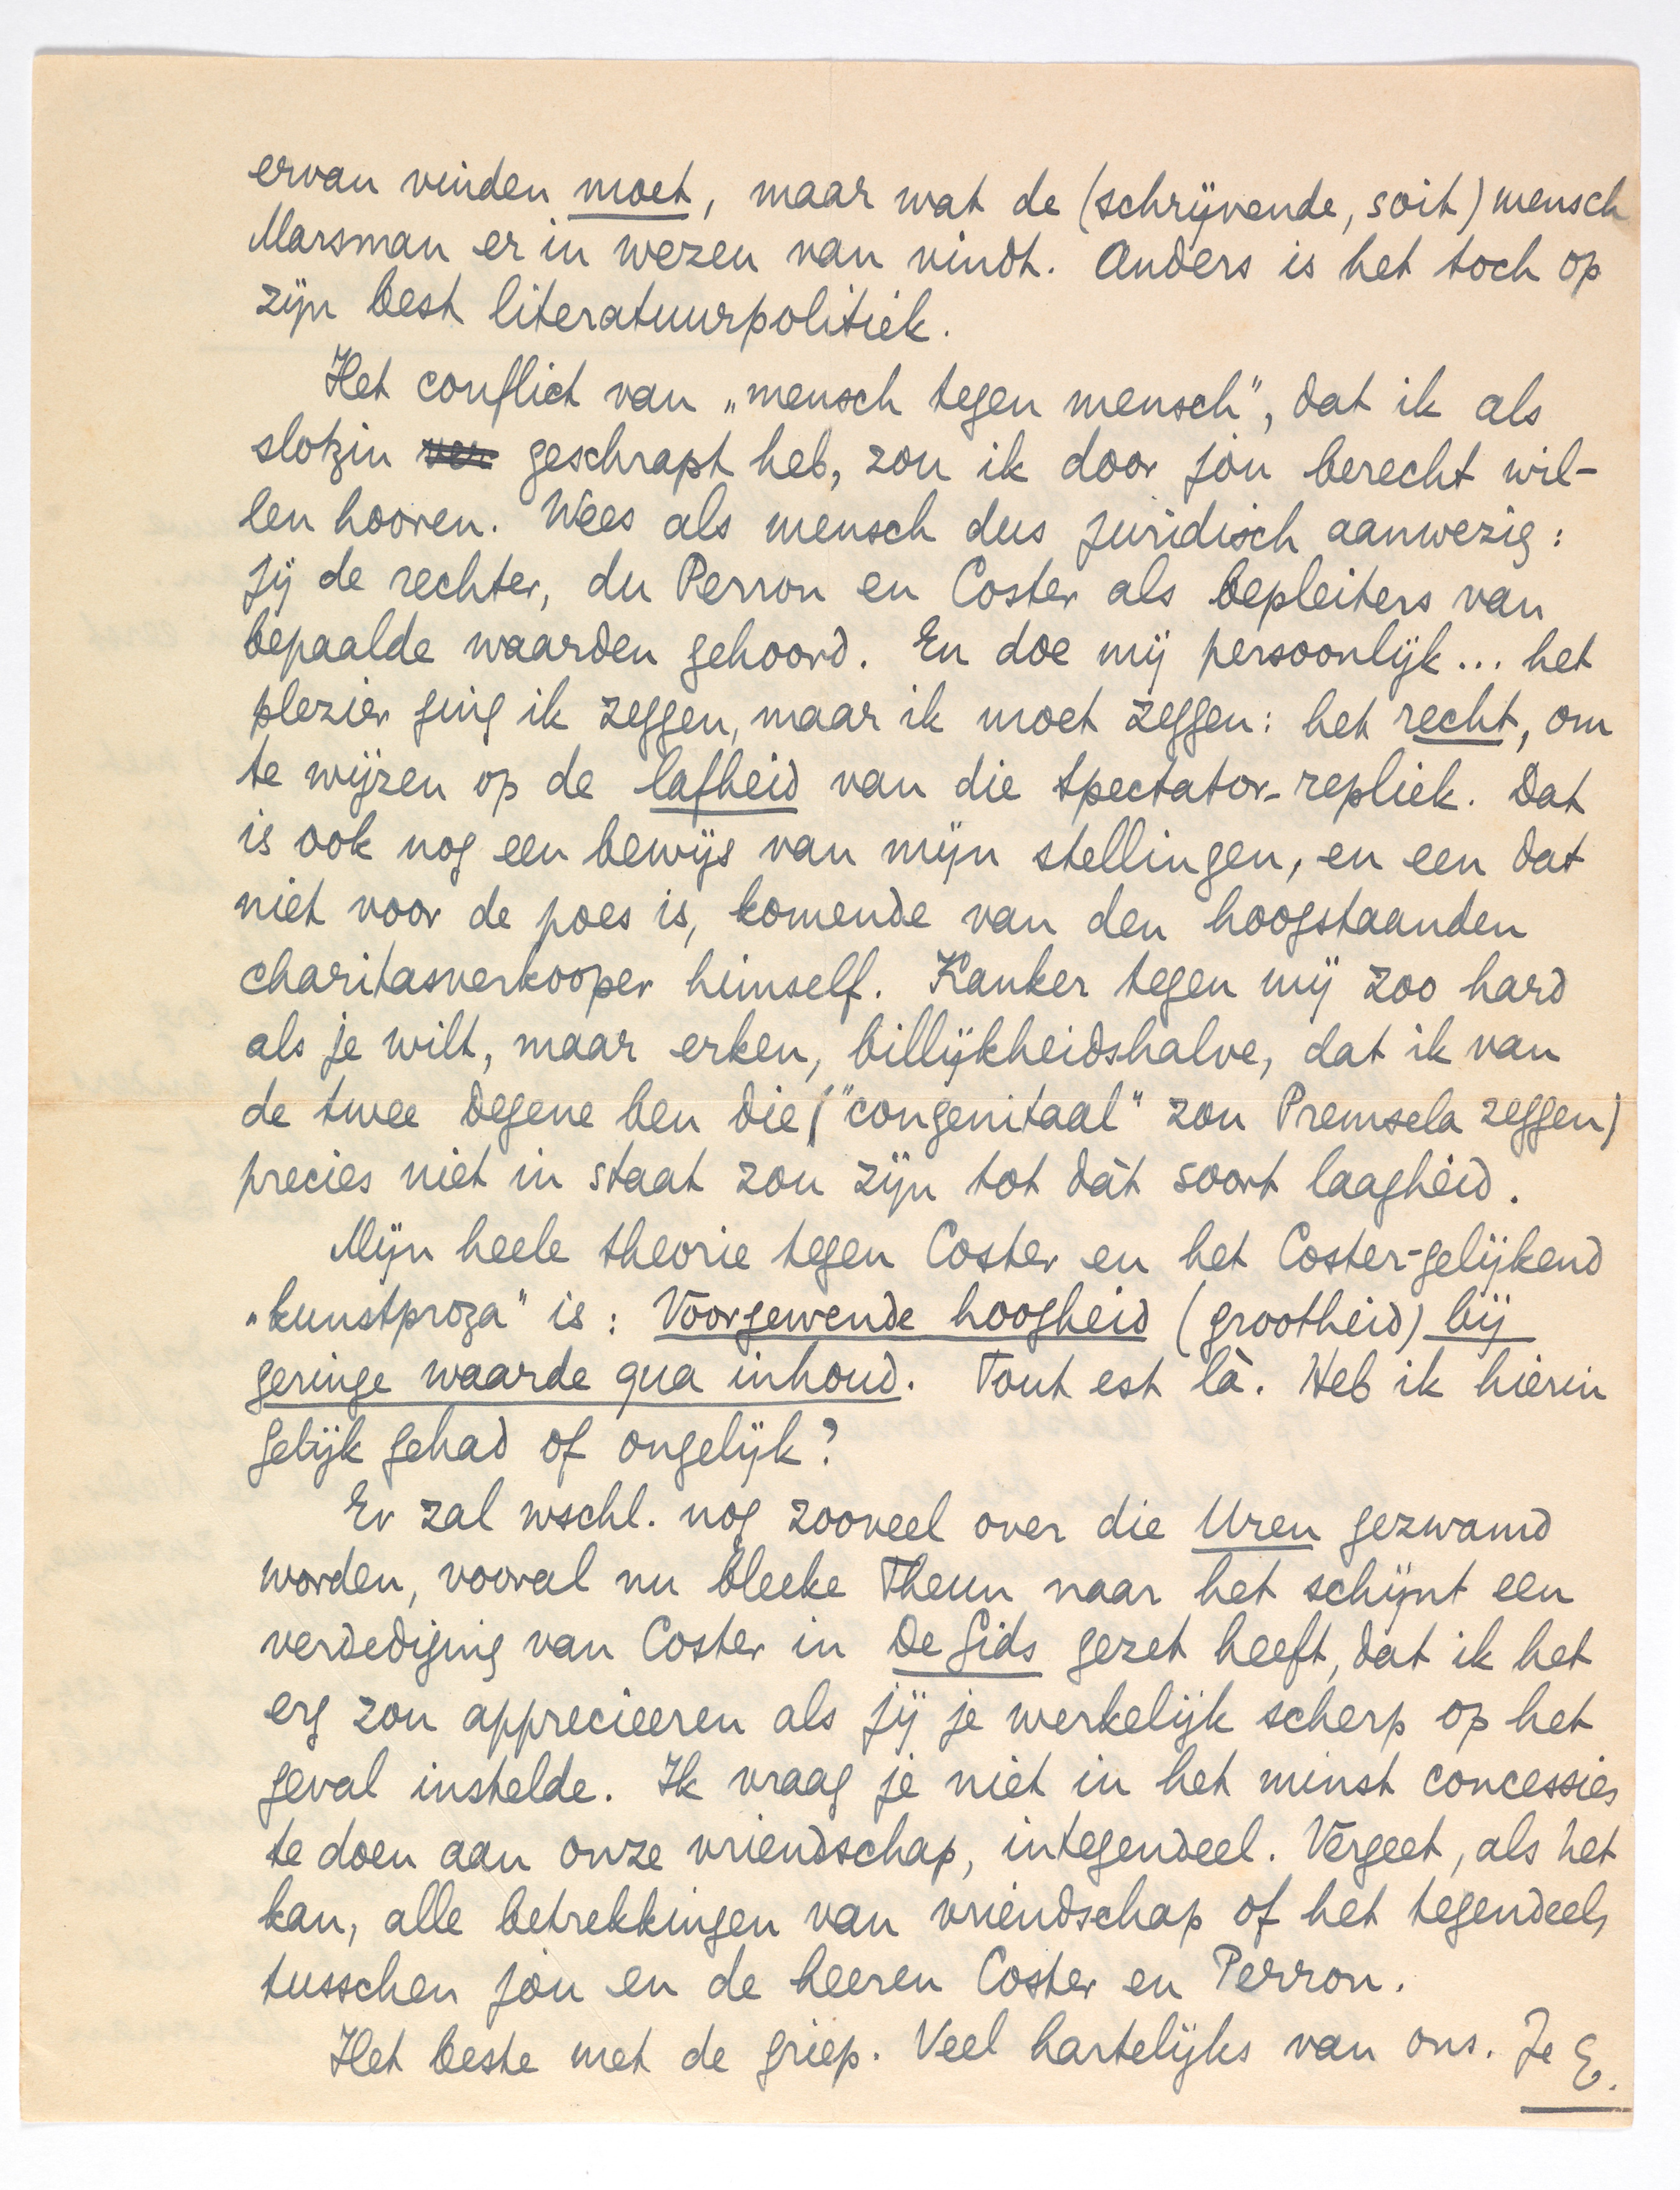 ervan vinden moet, maar wat de (schrijvende, soit) mensch
Marsman er in wezen van vindt. Anders is het toch op
zijn best literatuurpolitiek.
Het conflict van „mensch tegen mensch", dat ik als
slotzin ver geschrapt heb, zou ik door jóu berecht wil-
len hooren. Wees als mensch dus juridisch aanwezig:
jij de rechter, du Perron en Coster als bepleiters van
bepaalde waarden gehoord. En doe mij persoonlijk... het
plezier ging ik zeggen, maar ik moet zeggen: het recht, om
te wijzen op de lafheid van die spectator-repliek. Dat
is ook nog een bewijs van mijn stellingen, en een dat
niet voor de poes is, komende van den hoogstaanden
charitasverkooper himself. Kanker tegen mij zoo hard
als je wilt, maar erken, billijkheidshalve, dat ik van
de twee degene ben die ("congenitaal" zou Premsela zeggen)
precies niet in staat zou zijn tot dàt soort laagheid.
Mijn heele theorie tegen Coster en het Coster-gelijkend
„kunstproza" is: Voorgewende hoogheid (grootheid) bij
geringe waarde qua inhoud. Tout est là. Heb ik hierin
gelijk gehad of ongelijk?
Er zal wschl. nog zooveel over die Uren gezwamd
worden, vooral nu bleeke Theun naar het schijnt een
verdediging van Coster in De Gids gezet heeft, dat ik het
erg zou apprecieeren als jij je werkelijk scherp op het
geval instelde. Ik vraag je niet in het minst concessies
te doen aan onze vriendschap, integendeel. Vergeet, als het
kan, alle betrekkingen van vriendschap of het tegendeel,
tusschen jou en de heeren Coster en Perron.
Het beste met de griep. Veel hartelijks van ons. Je E.